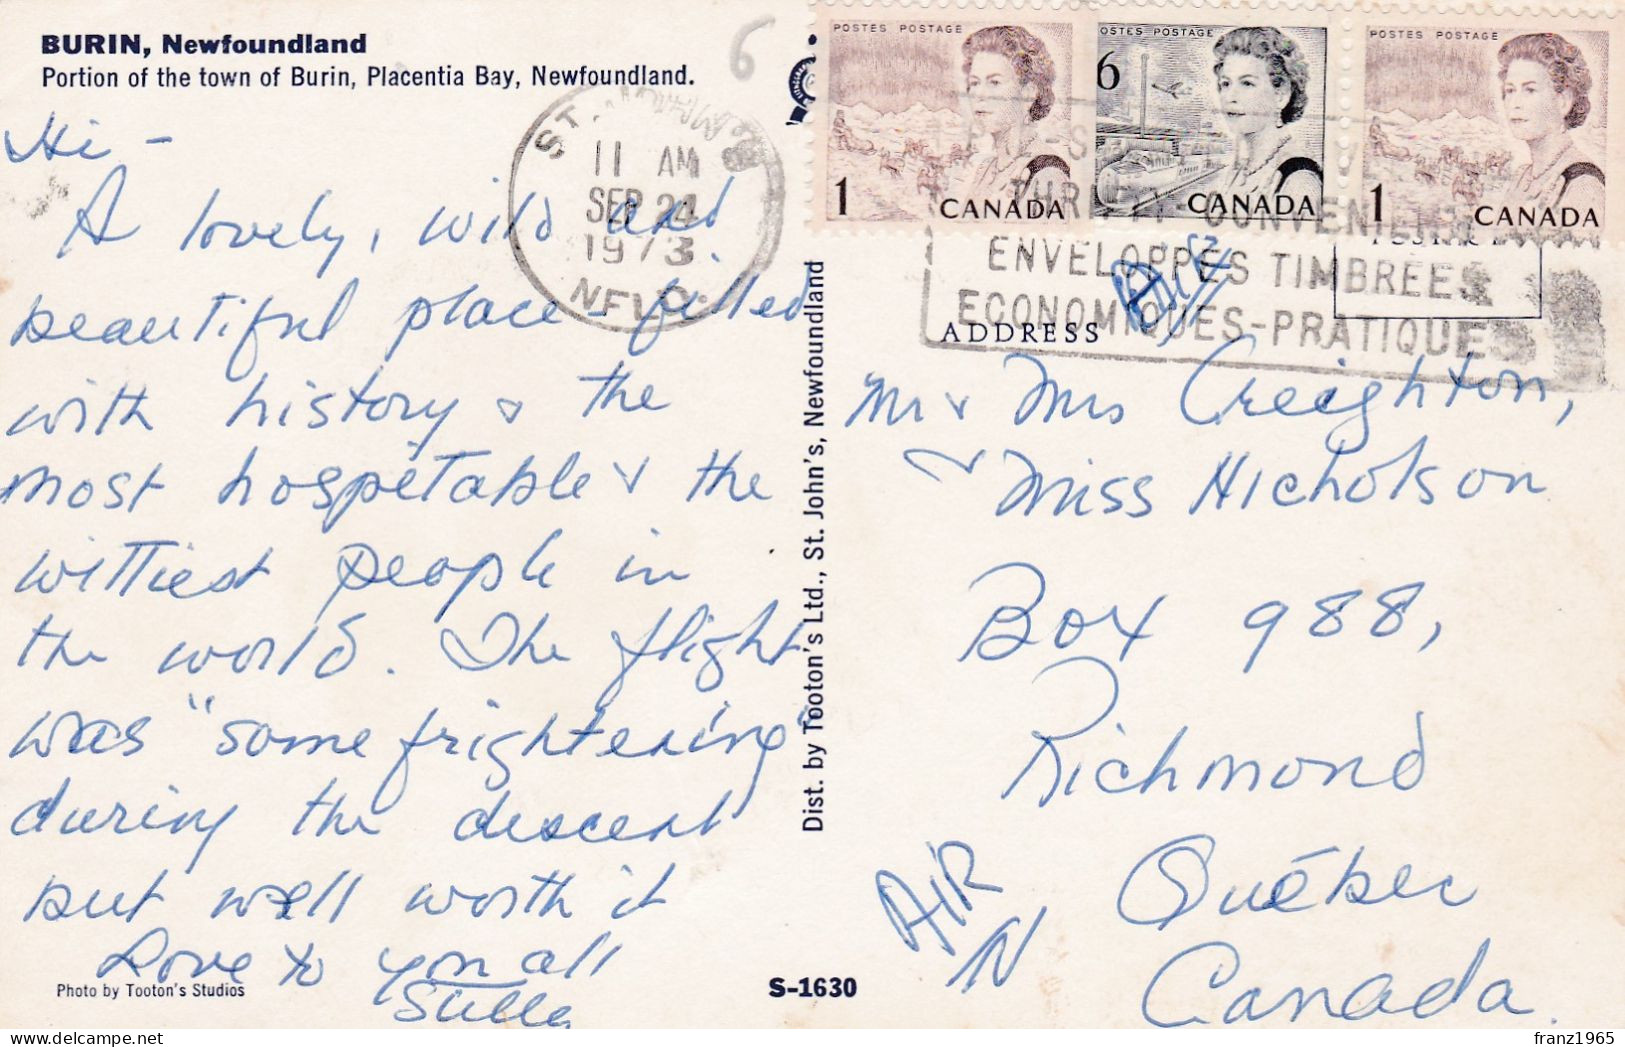 BURIN, Newfoundland
Portion of the town of Burin, Placentia Bay, Newfoundland.
6
Hi -
A lovely, wild and
beautiful place - filled
with history & the
most hospitable & the
wittiest people in
the world. The flight
was "some frightening"
during the descent
but well worth it
Love to you all
Photo by Tooton's Studios
S-1630
Dist. by Tooton's Ltd., St. John's, Newfoundland
ST.
11 AM
SEP 24
1973
NFLD.
POSTES POSTAGE
1
CANADA
OSTES POSTAGE
6
CANADA
POSTES POSTAGE
1
CANADA
ENVELOPPES TIMBREES
ECONOMIQUES-PRATIQUES
ADDRESS
Air
Mr & Mrs Creighton,
& Miss Nicholson
Box 988,
Richmond
Québec
Canada.
AIR
franz1965